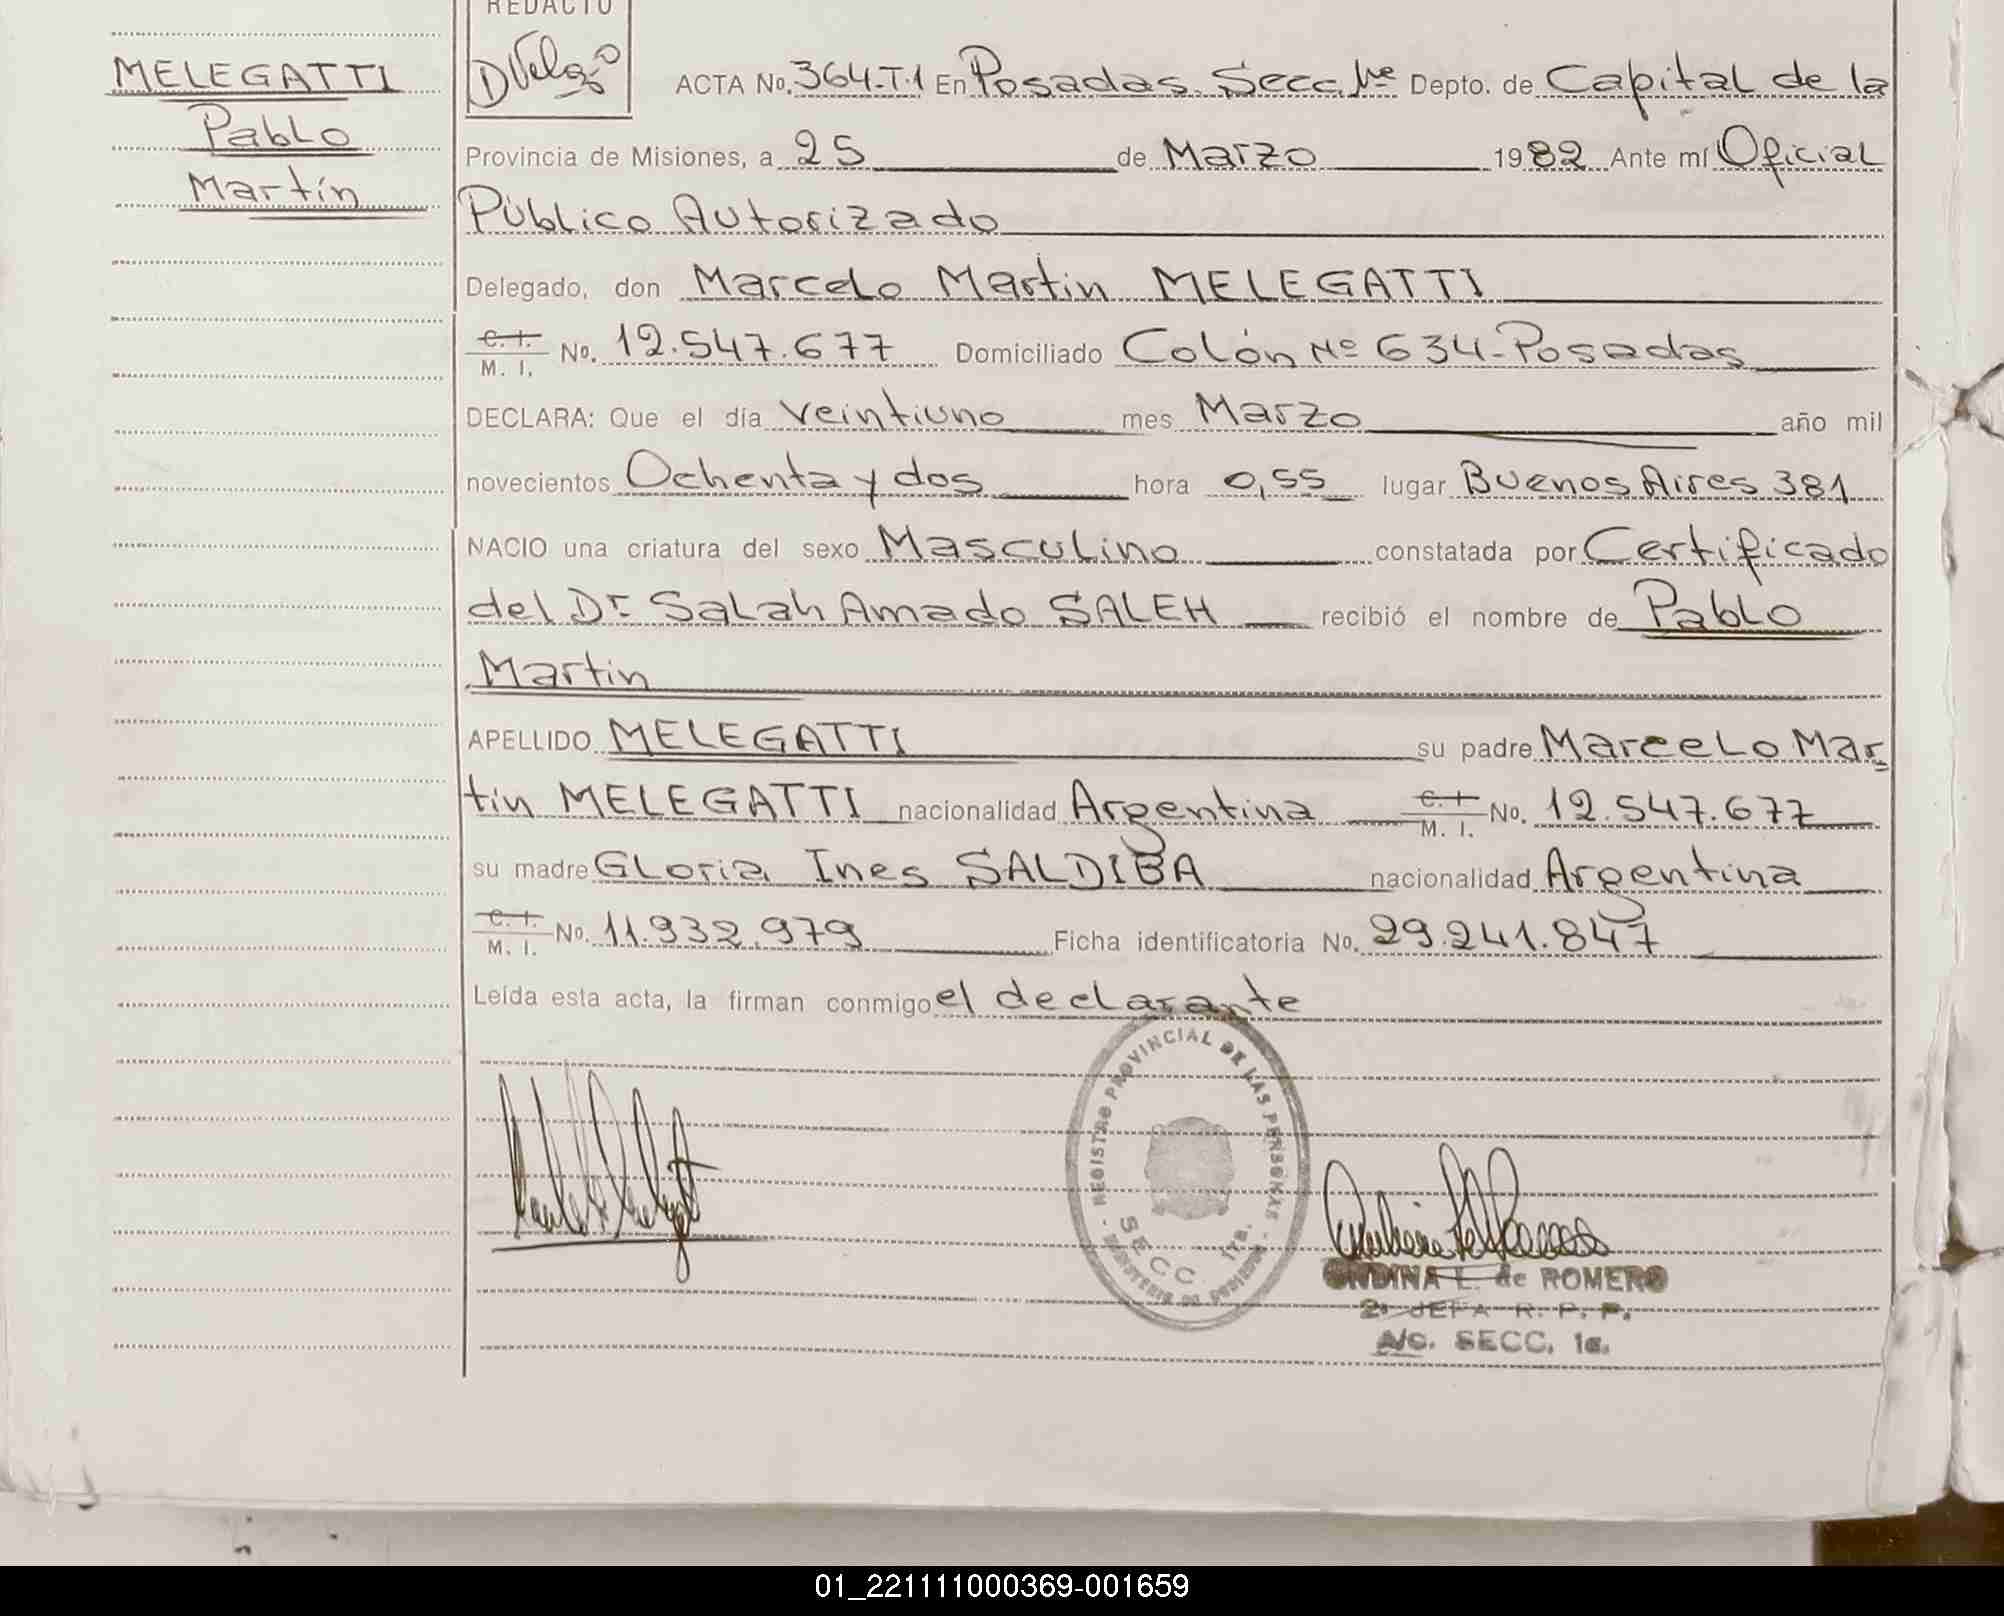 REDACTO
MELEGATTI
Pablo
Martín
ACTA No. 364-T.1 En Posadas, Secc. 1ra Depto. de Capital de la
Provincia de Misiones, a 25 de Marzo 1982 Ante mí Oficial
Público Autorizado
Delegado, don Marcelo Martin MELEGATTI
C. I. M. I. No. 12.547.677 Domiciliado Colón Nº 634-Posadas
DECLARA: Que el día veintiuno mes Marzo año mil
novecientos Ochenta y dos hora 0,55 lugar Buenos Aires 381
NACIO una criatura del sexo Masculino constatada por Certificado
del Dr. Salah Amado SALEH recibió el nombre de Pablo
Martin
APELLIDO MELEGATTI su padre Marcelo Mar
tin MELEGATTI nacionalidad Argentina C. I. M. I. No. 12.547.677
su madre Gloria Ines SALDIBA nacionalidad Argentina
C. I. M. I. No. 11.932.979 Ficha identificatoria No. 29.241.847
Leída esta acta, la firman conmigo el declarante
REGISTRO PROVINCIAL DE LAS PERSONAS
SECC. 1ra.
ONDINA L. de ROMERO
2ª JEFA R. P. P.
A/C. SECC. 1a.
01_221111000369-001659